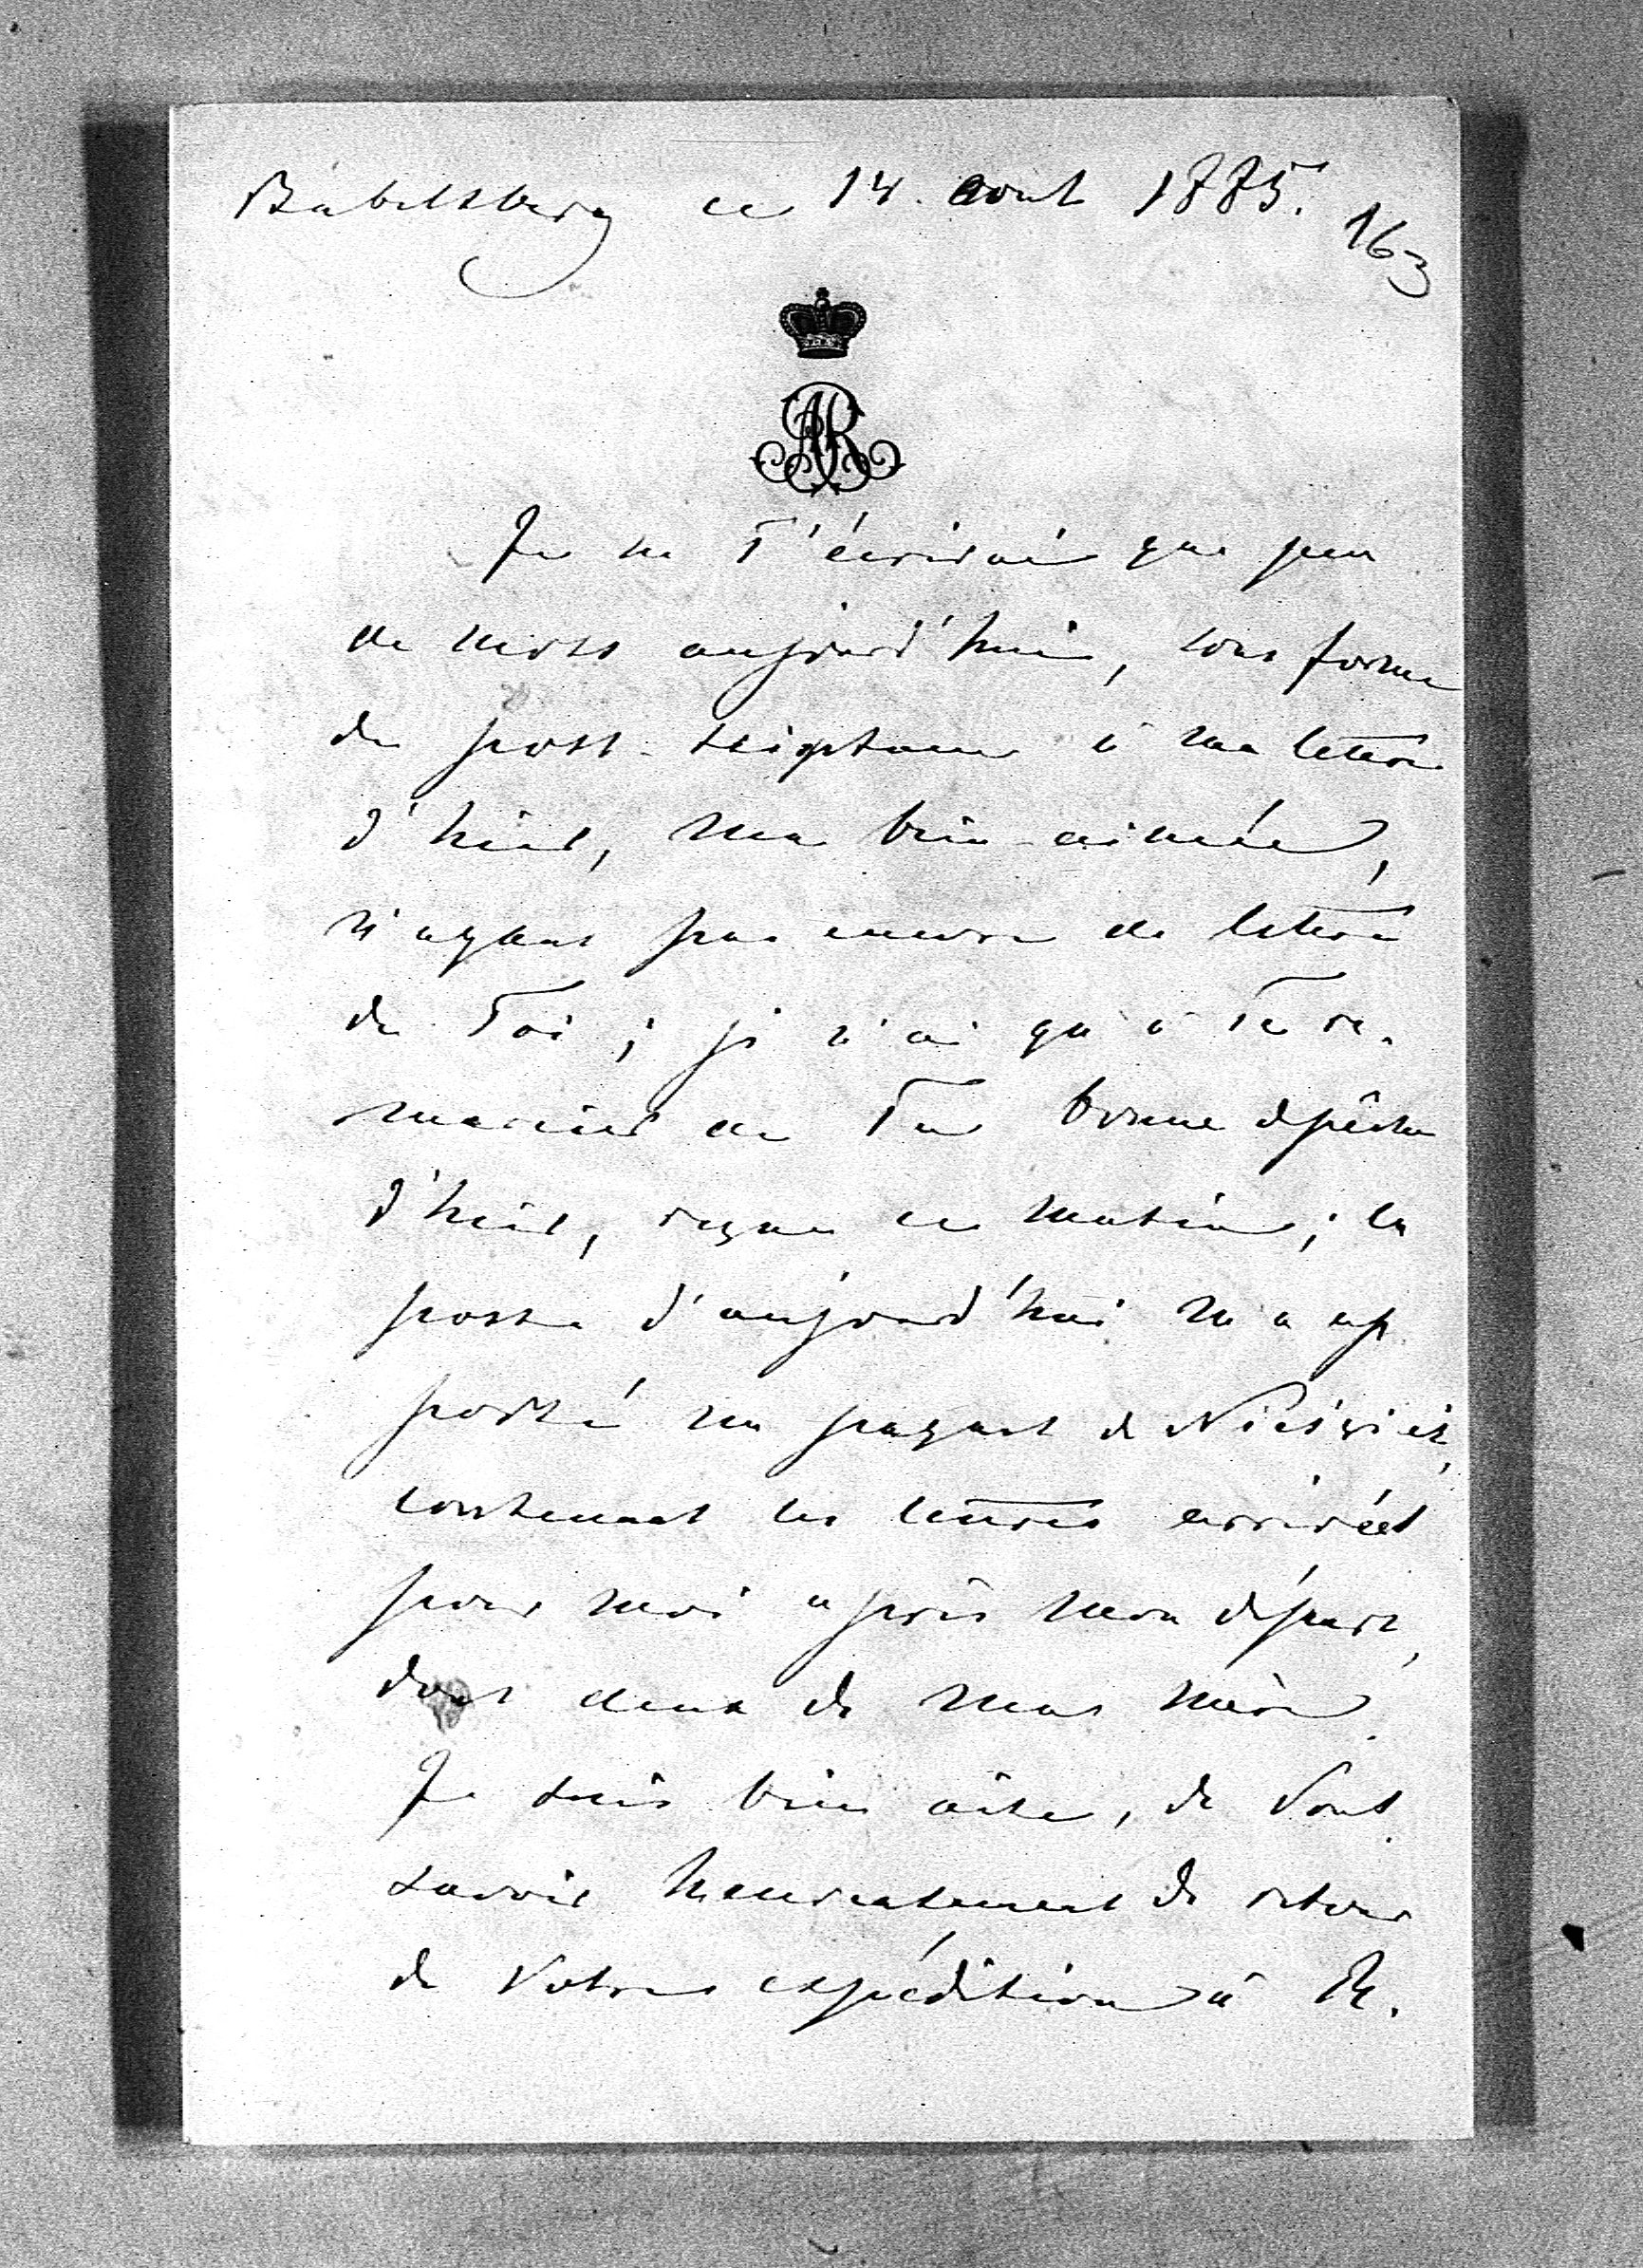 Babelsberg ce 14. aout 1885.
163
AR
Je ne T'écrirai que peu
de mots aujourd'hui, sous forme
de post-scriptum à ma lettre
d'hier, ma bien-aimée,
n'ayant pas encore de lettre
de Toi; je n'ai qu'à Te re-
mercier de Ta bonne dépêche
d'hier, reçue ce matin; la
poste d'aujourd'hui m'a ap
porté un paquet de Nieśwież,
contenant les lettres arrivées
pour moi après mon départ,
dont deux de mas mère.
Je suis bien aise, de Vous
savoir heureusement de retour
de Votre expédition à R.